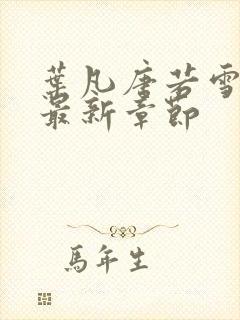 葉凡唐若雪
最新章節
馬年生